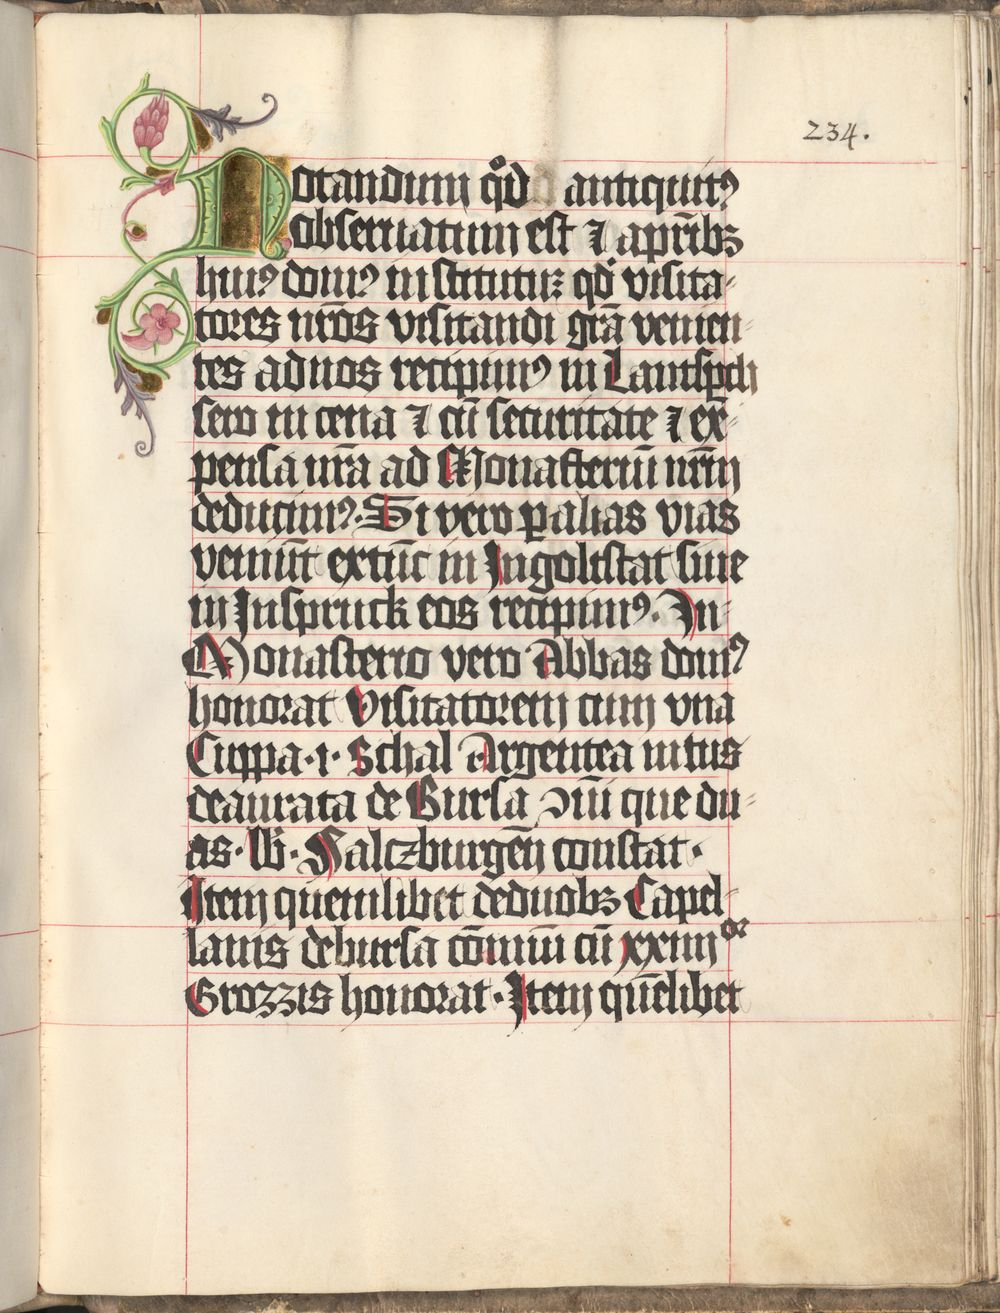 234.
Notandum qđ antiquit⁹
obseruatum est ⁊ a prīcib⁊
hui⁹ dom⁹ institut⁊ qđ visita⸗
tores nr̄os visitandi grā venien⸗
tes ad nos recipim⁹ in Lantsp̄ch
sero in cena ⁊ cū securitate ⁊ ex⸗
pensa nr̄a ad Monasteriū nr̄m
deducim⁹. Si vero ꝑ alias vias
veniūt extūc in Ingolstat siue
in Inspruck eos recipim⁹. In⸗
Monasterio vero Abbas dom⁹
honorat Visitatorem cum vna
Cuppa ·i· Schal Argentea intus
deaurata de Bursa que du⸗
as · lb · Salczburgeñ constat·
Item quemlibet de duob⁊ Capel⸗
lanis de bursa cōmūi cū xxiiij
Grozzis honorat · Item quēlibet